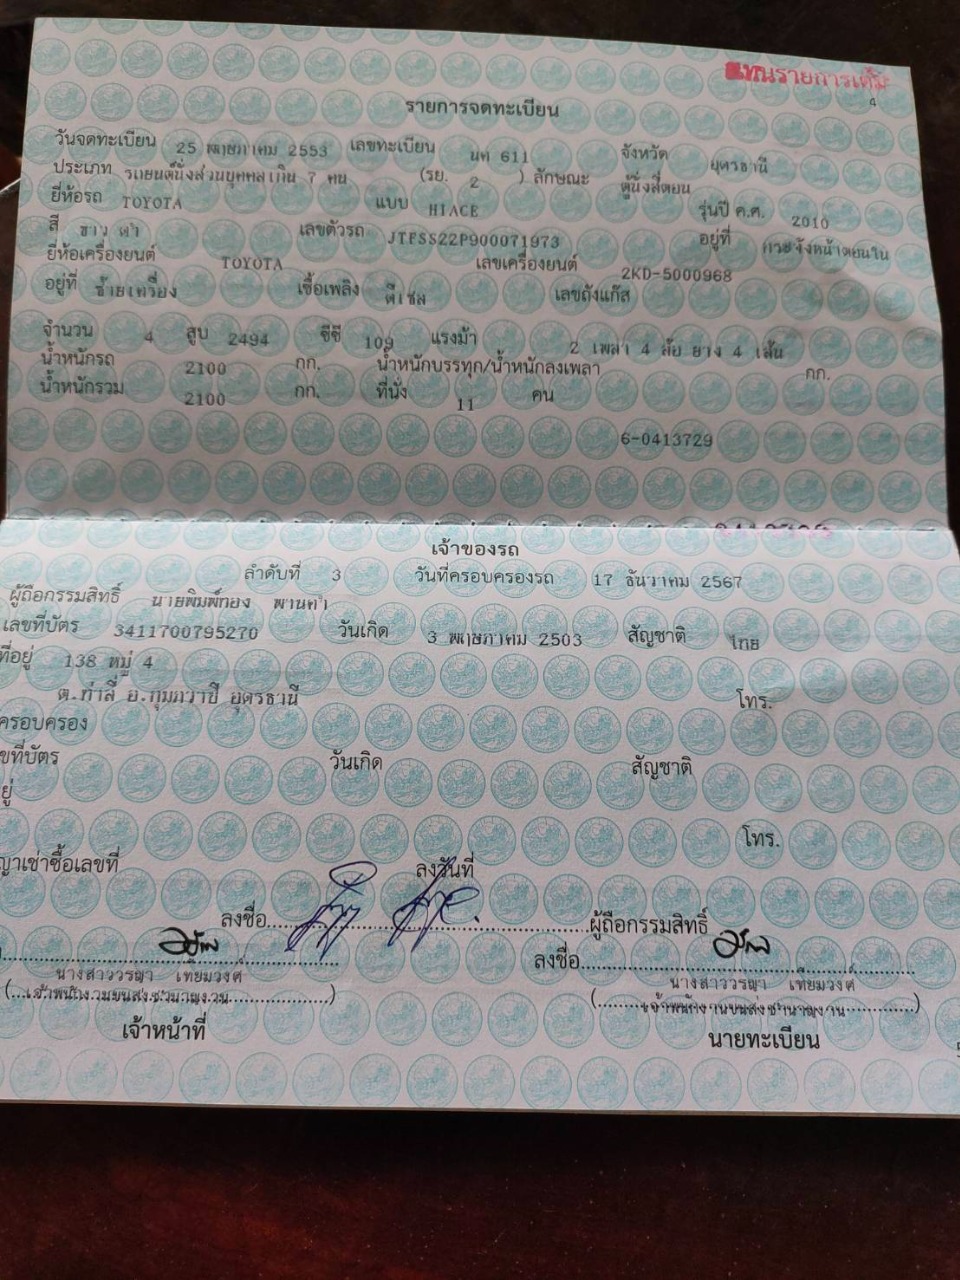 แทนรายการเต็ม
4
รายการจดทะเบียน
วันจดทะเบียน 25 พฤษภาคม 2553 เลขทะเบียน นค 611 จังหวัด อุดรธานี
ประเภท รถยนต์นั่งส่วนบุคคลเกิน 7 คน (รย. 2 ) ลักษณะ ตู้นั่งสี่ตอน
ยี่ห้อรถ TOYOTA แบบ HIACE รุ่นปี ค.ศ. 2010
สี ขาว ดำ เลขตัวรถ JTFSS22P900071973 อยู่ที่ กระจังหน้าตอนใน
ยี่ห้อเครื่องยนต์ TOYOTA เลขเครื่องยนต์ 2KD-5000968
อยู่ที่ ซ้ายเครื่อง เชื้อเพลิง ดีเซล เลขถังแก๊ส
จำนวน 4 สูบ 2494 ซีซี 109 แรงม้า 2 เพลา 4 ล้อ ยาง 4 เส้น
น้ำหนักรถ 2100 กก. น้ำหนักบรรทุก/น้ำหนักลงเพลา กก.
น้ำหนักรวม 2100 กก. ที่นั่ง 11 คน
6-0413729
เจ้าของรถ
ลำดับที่ 3 วันที่ครอบครองรถ 17 ธันวาคม 2567
ผู้ถือกรรมสิทธิ์ นายพิมพ์ทอง พานคำ
เลขที่บัตร 3411700795270 วันเกิด 3 พฤษภาคม 2503 สัญชาติ ไทย
ที่อยู่ 138 หมู่ 4
ต.ท่าลี่ อ.กุมภวาปี อุดรธานี โทร.
ครอบครอง
ขที่บัตร วันเกิด สัญชาติ
ยู่
โทร.
ญาเช่าซื้อเลขที่ ลงวันที่
ลงชื่อ ผู้ถือกรรมสิทธิ์
ลงชื่อ
นางสาววรญา เทียมวงศ์ นางสาววรญา เทียมวงศ์
(เจ้าพนักงานขนส่งชำนาญงาน) (เจ้าพนักงานขนส่งชำนาญงาน)
เจ้าหน้าที่ นายทะเบียน
5